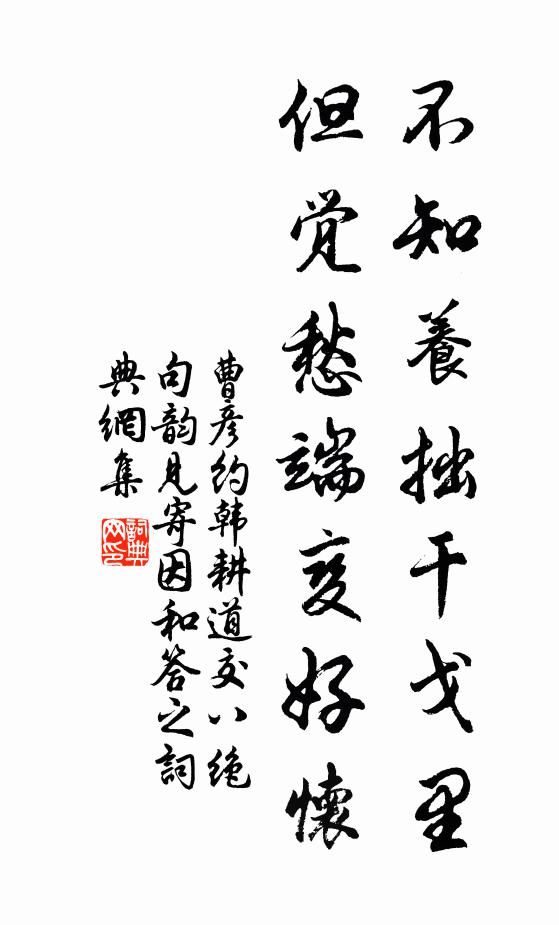 不知養拙干戈里
但觉愁端变好懷
曹彦约韩耕道交八绝
句韵见寄因和答之詞
典網集
詞典网印